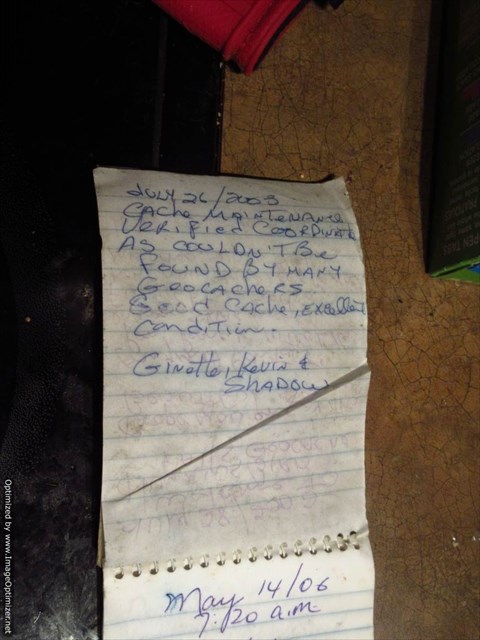 JULY 26/2003
Cache Maintenance
Verified Coordinate
As couldn't be
found by many
Geocachers
Good Cache, excellent
condition.
Ginette, Kevin &
Shadow
May 14/06
7:20 a.m.
Optimized by www.ImageOptimizer.net